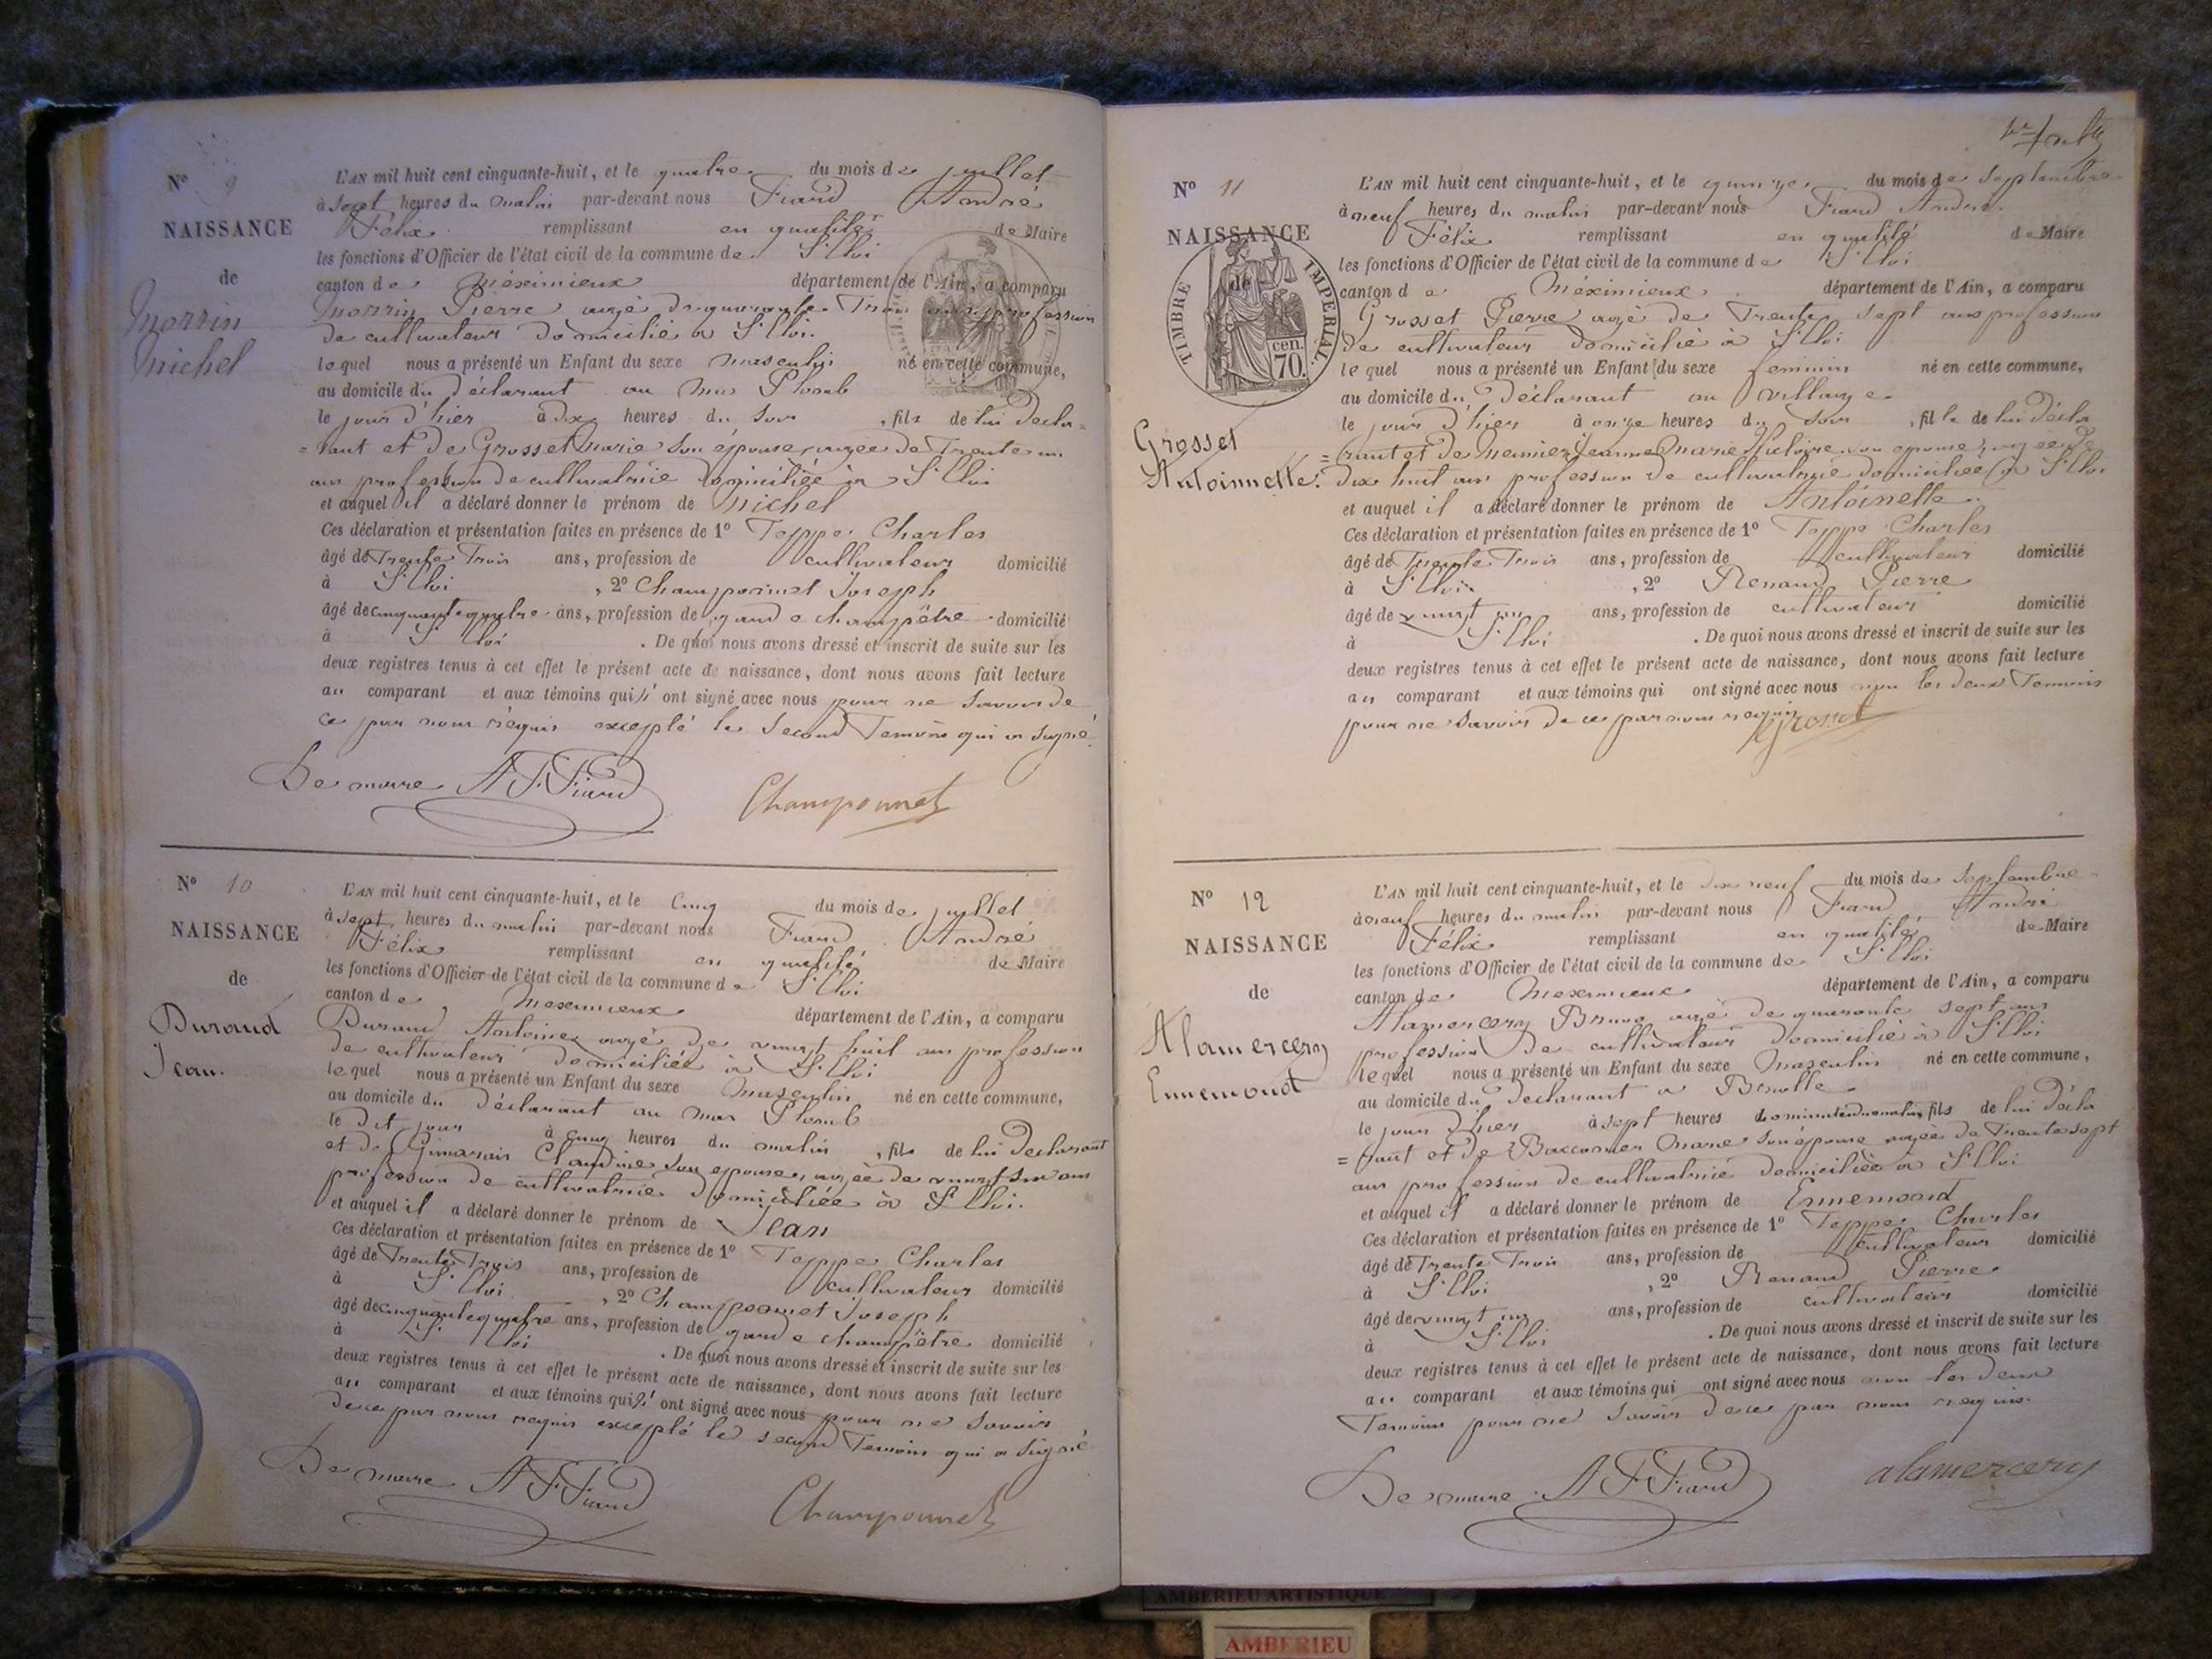 Nº 9
NAISSANCE
de
Morrin
Michel
L'AN mil huit cent cinquante-huit, et le quatre du mois de juillet
à sept heures du matin par-devant nous Fiard André
Félix remplissant en qualité de Maire
les fonctions d'Officier de l'état civil de la commune de St Eloi
canton de Meximieux département de l'Ain, a comparu
Morrin Pierre agé de quarante Trois ans profession
de cultivateur domicilié à St Eloi
lequel nous a présenté un Enfant du sexe masculin né en cette commune,
au domicile du déclarant au Mas Plomb
le jour d'hier à dix heures du soir , fils de lui décla=
=rant et de Grosset Marie son épouse, agée de Trente un
ans profession de cultivatrice domiciliée à St Eloi
et auquel il a déclaré donner le prénom de Michel
Ces déclaration et présentation faites en présence de 1º Teppe Charles
âgé de Trente Trois ans, profession de cultivateur domicilié
à St Eloi , 2º Champomet Joseph
âgé de cinquante quatre ans, profession de garde champêtre domicilié
à St Eloi . De quoi nous avons dressé et inscrit de suite sur les
deux registres tenus à cet effet le présent acte de naissance, dont nous avons fait lecture
au comparant et aux témoins qui n'ont signé avec nous pour ne savoir de
ce par nous réquis excepté le second Temoin qui a signé
Le maire A F Fiard Champomet
Nº 10
NAISSANCE
de
Durand
Jean.
L'AN mil huit cent cinquante-huit, et le Cinq du mois de juillet
à sept heures du matin par-devant nous Fiard André
Félix remplissant en qualité de Maire
les fonctions d'Officier de l'état civil de la commune de St Eloi
canton de Meximieux département de l'Ain, a comparu
Durand Antoine agé de vingt huit ans profession
de cultivateur domiciliée à St Eloi
lequel nous a présenté un Enfant du sexe Masculin né en cette commune,
au domicile du déclarant au Mas Plomb
le dit jour à cinq heures du matin , fils de lui déclarant
et de Claudine son epouse, agée de vingt six ans
profession de cultivatrice domiciliée à St Eloi.
et auquel il a déclaré donner le prénom de Jean
Ces déclaration et présentation faites en présence de 1º Teppe Charles
âgé de Trente Trois ans, profession de cultivateur domicilié
à St Eloi , 2º Champomet Joseph
âgé de cinquante quatre ans, profession de garde champêtre domicilié
à St Eloi . De quoi nous avons dressé et inscrit de suite sur les
deux registres tenus à cet effet le présent acte de naissance, dont nous avons fait lecture
au comparant et aux témoins qui n'ont signé avec nous pour ne savoir
de ce par nous requis excepté le second Temoin qui a signé
Le maire A F Fiard Champomet
Nº 11
NAISSANCE
de
TIMBRE IMPERIAL.
cen.
70.
Grosset
Antoinnette.
L'AN mil huit cent cinquante-huit, et le quinze du mois de Septembre
à neuf heures du matin par-devant nous Fiard André
Félix remplissant en qualité de Maire
les fonctions d'Officier de l'état civil de la commune de St Eloi
canton de Meximieux département de l'Ain, a comparu
Grosset Pierre agé de Trente sept ans profession
de cultivateur domicilié à St Eloi
lequel nous a présenté un Enfant du sexe feminin né en cette commune,
au domicile du déclarant au village
le jour d'hier à onze heures du soir , fille de lui décla
=rant et de Jeanne Marie son épouse, agée de
dix huit ans profession de cultivatrice domiciliée à St Eloi
et auquel il a déclaré donner le prénom de Antoinette
Ces déclaration et présentation faites en présence de 1º Teppe Charles
âgé de Trente Trois ans, profession de cultivateur domicilié
à St Eloi , 2º Renaud Pierre
âgé de vingt ans, profession de cultivateur domicilié
à St Eloi . De quoi nous avons dressé et inscrit de suite sur les
deux registres tenus à cet effet le présent acte de naissance, dont nous avons fait lecture
au comparant et aux témoins qui ont signé avec nous non les deux Temoins
pour ne savoir de ce par nous requis Grosset
Nº 12
NAISSANCE
de
Alamercery
Ennemond
L'AN mil huit cent cinquante-huit, et le dix neuf du mois de Septembre
à neuf heures du matin par-devant nous Fiard André
Félix remplissant en qualité de Maire
les fonctions d'Officier de l'état civil de la commune de St Eloi
canton de Meximieux département de l'Ain, a comparu
Alamercery Bruno agé de quarante sept ans
profession de cultivateur domicilié à St Eloi
lequel nous a présenté un Enfant du sexe Masculin né en cette commune,
au domicile du déclarant à
le jour d'hier à sept heures du matin, fils de lui décla
=rant et de Marie son épouse agée de Trente sept
ans profession de cultivatrice domiciliée à St Eloi
et auquel il a déclaré donner le prénom de Ennemond
Ces déclaration et présentation faites en présence de 1º Teppe Charles
âgé de Trente Trois ans, profession de cultivateur domicilié
à St Eloi , 2º Renaud Pierre
âgé de vingt ans, profession de cultivateur domicilié
à St Eloi . De quoi nous avons dressé et inscrit de suite sur les
deux registres tenus à cet effet le présent acte de naissance, dont nous avons fait lecture
au comparant et aux témoins qui ont signé avec nous non les deux
Temoins pour ne savoir de ce par nous requis.
Le maire A F Fiard alamercery
AMBERIEU ARTISTIQUE
AMBERIEU